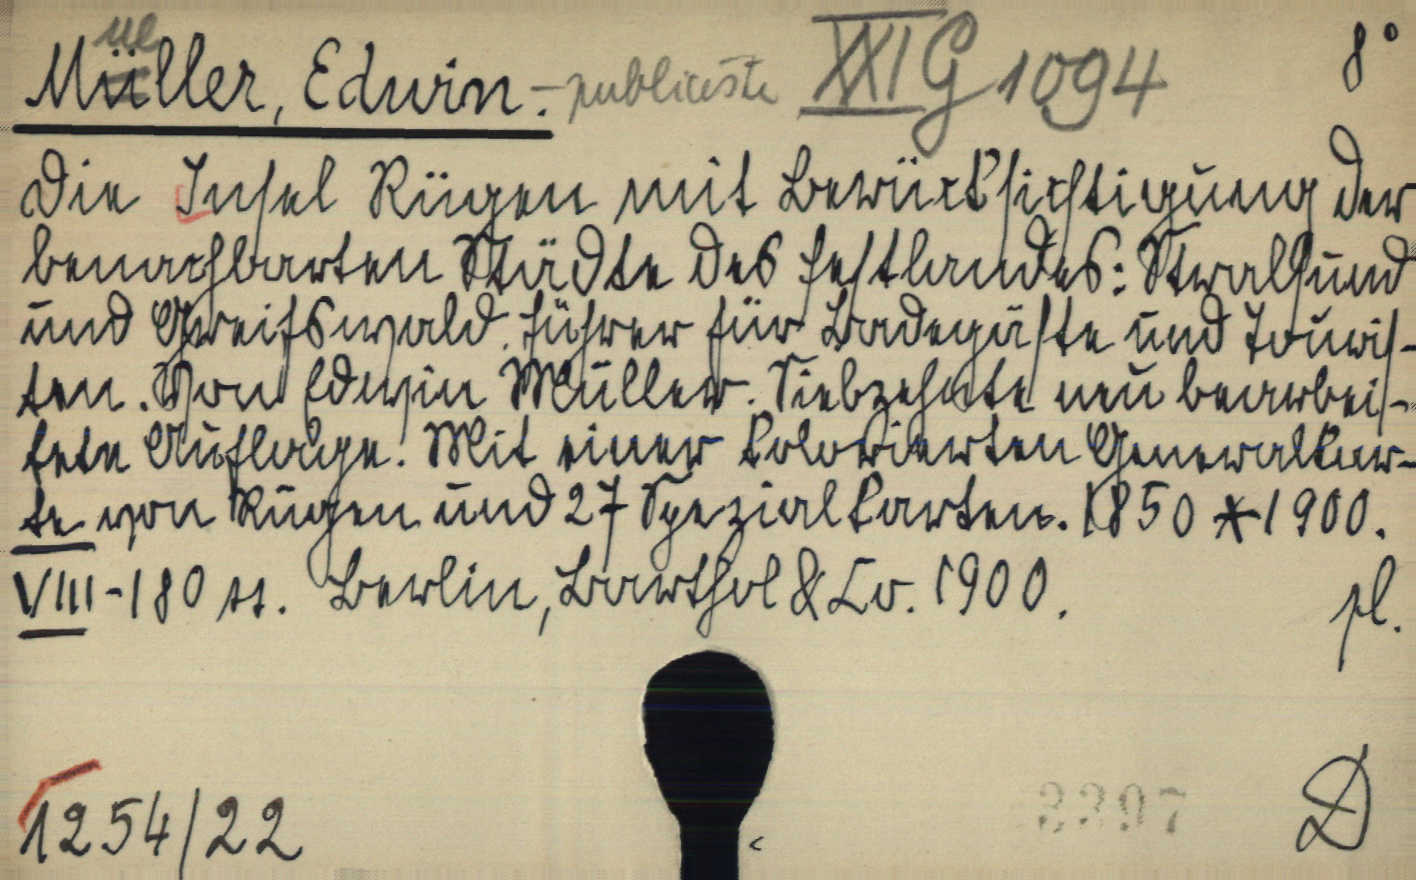 Müller, Edwin. - publiciste XXI G 1094 8°
ue
Die Insel Rügen mit Berücksichtigung der
benachbarten Städte des Festlandes: Stralsund
und Greifswald. Führer für Badegäste und Touris-
ten. Von Edwin Müller. Siebzehnte neu bearbei-
tete Auflage. Mit einer kolorierten Generalkar-
te von Rügen und 27 Spezialkarten. 1850 * 1900.
VIII-180 ss. Berlin, Barthol & Co. 1900. pl.
1254/22 3397 D